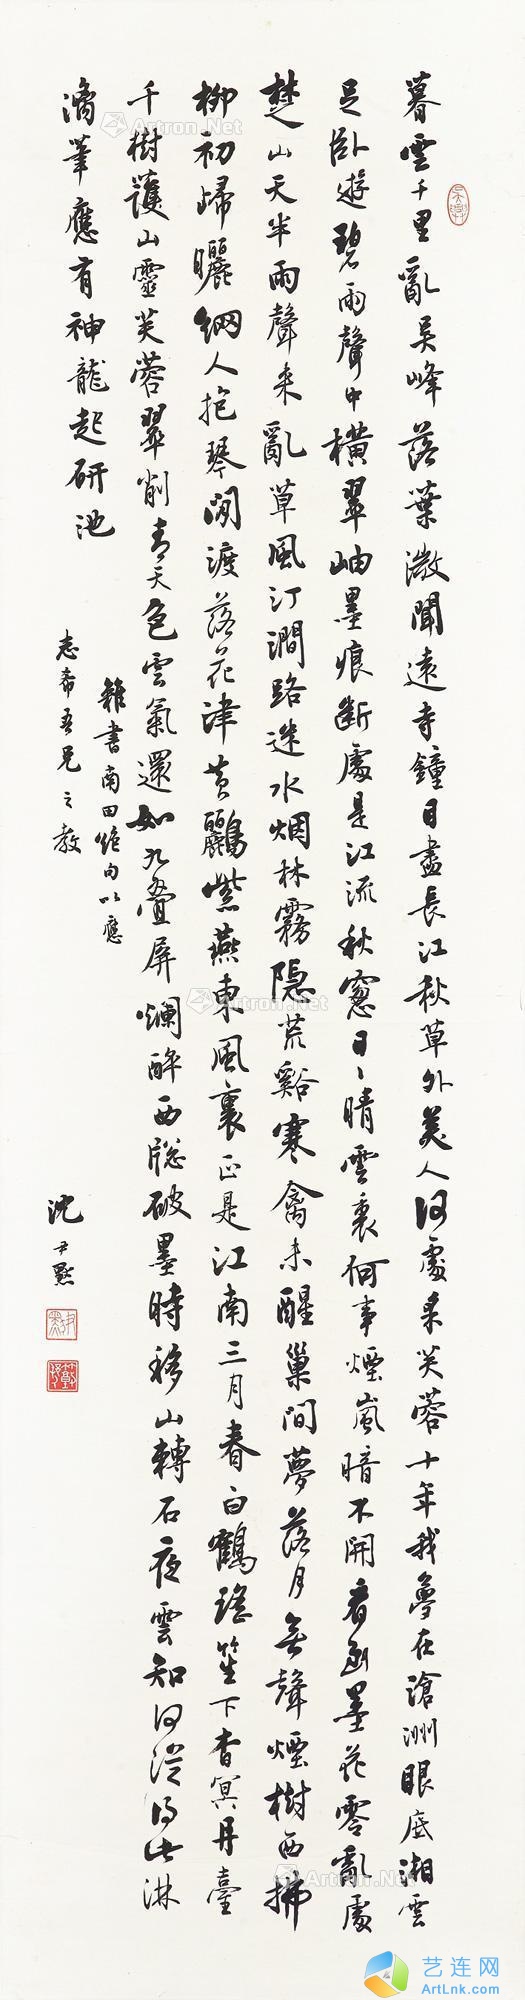 暮雲千里亂吳峰落葉微聞遠寺鐘目盡長江秋草外美人何處采芙蓉十年我夢在滄洲眼底湘雲
足臥遊碧雨聲中橫翠岫墨痕斷處是江流秋窗日日晴雲裏何事煙嵐暗不開看函墨花零亂處
楚山天半雨聲來亂草風汀澗路迷水烟林霧隱荒谿寒禽未醒巢間夢落月無聲煙樹西拂
柳初歸曬網人抱琴閒渡落花津黃鸝紫燕東風裏正是江南三月春白鶴瑤笙下杳冥丹臺
千樹護山靈芙蓉翠削青天色雲氣還如九疊屏爛醉西窗破墨時移山轉石夜雲知何從得此淋
漓筆應有神龍起研池
雜書南田絕句以應
志希吾兄之教
沈尹默
Artron.Net
艺连网
ArtLnk.com